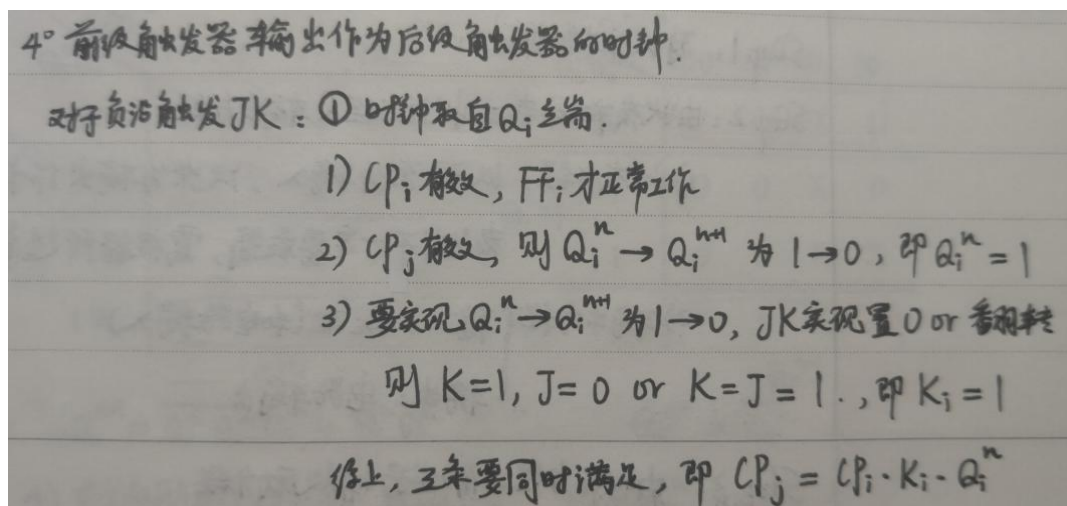 4° 前级触发器输出作为后级触发器的时钟.
对于负沿触发JK:① 时钟取自Qᵢ端.
1) CPᵢ有效, FFᵢ才正常工作
2) CPⱼ有效, 则 Qᵢⁿ → Qᵢⁿ⁺¹ 为 1→0, 即 Qᵢⁿ = 1
3) 要实现 Qᵢⁿ→Qᵢⁿ⁺¹ 为1→0, JK实现置0 or 翻转
则 K=1, J=0 or K=J=1., 即 Kᵢ=1
综上, 三条要同时满足, 即 CPⱼ = CPᵢ·Kᵢ·Qᵢⁿ